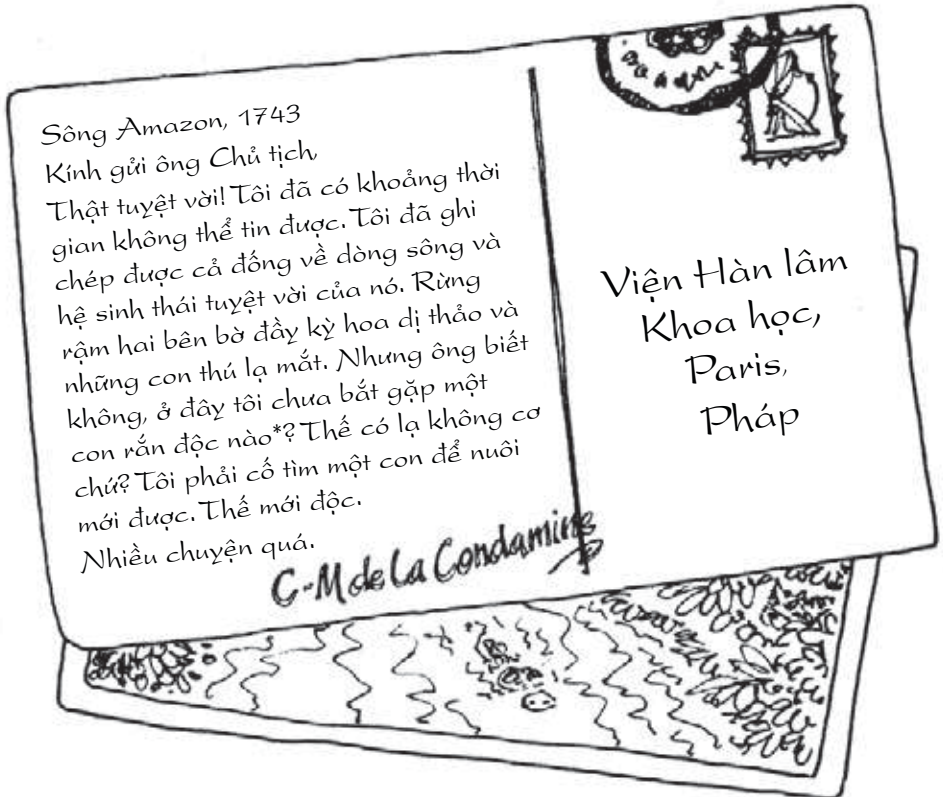 Sông Amazon, 1743
Kính gửi ông Chủ tịch,
Thật tuyệt vời! Tôi đã có khoảng thời
gian không thể tin được. Tôi đã ghi
chép được cả đống về dòng sông và
hệ sinh thái tuyệt vời của nó. Rừng
rậm hai bên bờ đầy kỳ hoa dị thảo và
những con thú lạ mắt. Nhưng ông biết
không, ở đây tôi chưa bắt gặp một
con rắn độc nào*? Thế có lạ không cơ
chứ? Tôi phải cố tìm một con để nuôi
mới được. Thế mới độc.
Nhiều chuyện quá.
C-M de La Condamine
Viện Hàn lâm
Khoa học,
Paris,
Pháp